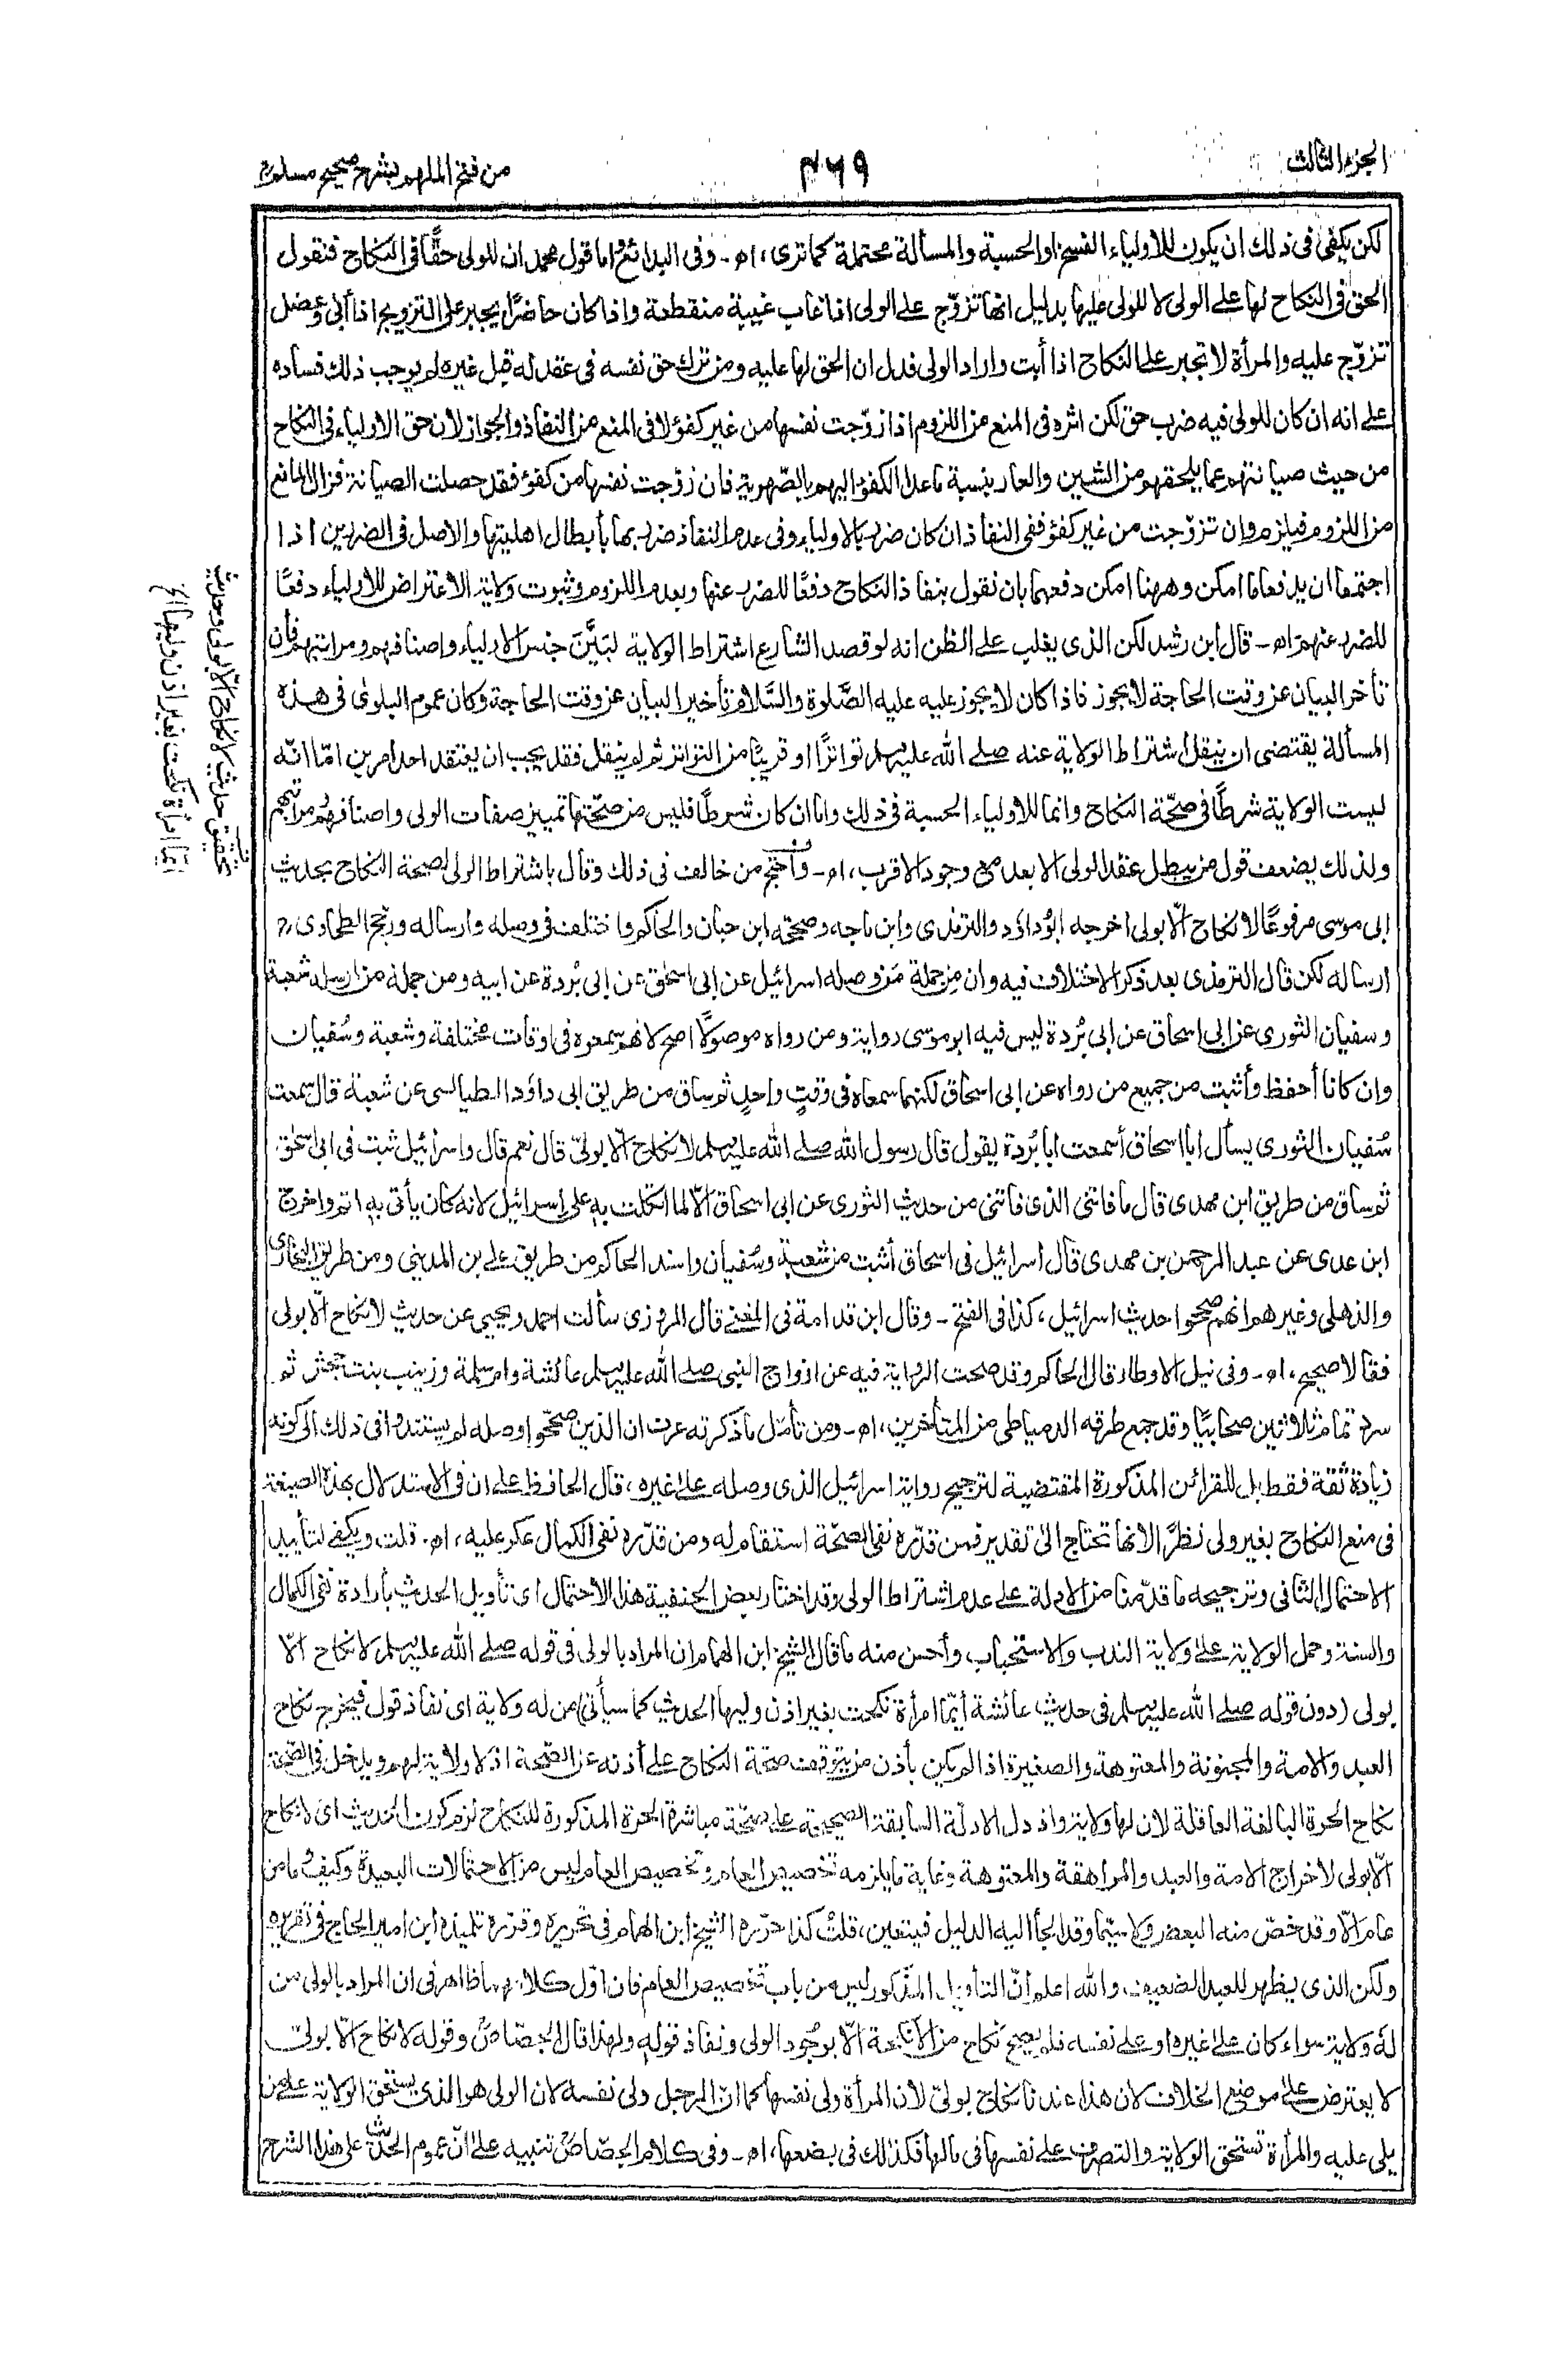 الجزء الثالث
٤٦٩
من فتح الملهم بشرح صحيح مسلم
لكن يكفى فى ذلك ان يكون للاولياء الفسخ او الحسبة والمسألة محتملة كما ترى، اه۔ وفى البدائع واما قول محمد ان للولى حقًّا فى النكاح فنقول
الحق فى النكاح لها على الولى لا للولى عليها بدليل انها تزوّج على الولى اذا غاب غيبة منقطعة واذا كان حاضرًا يجبر على التزويج اذا أبى وعضل
تزوّج عليه والمرأة لا تجبر على النكاح اذا أبت واراد الولى فدل ان الحق لها عليه ومن ترك حق نفسه فى عقد له قبل غيره لم يوجب ذلك فساده
على انه ان كان للولى فيه ضرب حق لكن اثره فى المنع من اللزوم اذا زوّجت نفسها من غير كفؤ لا فى المنع من النفاذ والجواز لان حق الاولياء فى النكاح
من حيث صيانتهم عما يلحقهم من الشين والعار بنسبة ما عدا الكفؤ اليهم بالصهرية فان زوّجت نفسها من كفؤ فقد حصلت الصيانة فزال المانع
من اللزوم فيلزم وان تزوّجت من غير كفؤ ففى النفاذ ان كان ضرر بالاولياء وفى عدم النفاذ ضرر بها بأبطال اهليتها والاصل فى الضررين اذا
اجتمعا ان يدفعا ما امكن وههنا امكن دفعهما بان نقول بنفاذ النكاح دفعًا للضرر عنها وبعدم اللزوم وثبوت ولاية الاعتراض للاولياء دفعًا
للضرر عنهم اه۔ قال ابن رشد لكن الذى يغلب على الظن انه لو قصد الشارع اشتراط الولاية لبَيَّنَ جنس الاولياء واصنافهم ومراتبهم فأن
تأخر البيان عن وقت الحاجة لا يجوز فاذا كان لا يجوز عليه عليه الصَّلوة والسَّلام تأخير البيان عن وقت الحاجة وكان عموم البلوى فى هذه
المسألة يقتضى ان ينقل اشتراط الولاية عنه صلى الله عليه وسلم تواترًا او قريبًا من التواتر ثم لم ينقل فقد يجب ان يعتقد احد امرين امّا انّه
ليست الولاية شرطًا فى صحّة النكاح وانما للاولياء الحسبة فى ذلك واما ان كان شرطًا فليس من صحّتها تمييز صفات الولى واصنافهم ومراتبهم
ولذلك يضعف قول من يبطل عقد الولى الابعد مع وجود الاقرب، اه۔ واحتج من خالف فى ذلك وقال باشتراط الولى لصحة النكاح بحديث
ابى موسى مرفوعًا لا نكاح الّا بولى اخرجه ابُو داوٗد والترمذى وابن ماجه وصححه ابن حبان والحاكم واختلف فى وصله وارساله ورجح الطحاوى رح
ارساله لكن قال الترمذى بعد ذكر الاختلاف فيه وان من جملة مَن وصله اسرائيل عن ابى اسحٰق عن ابى بُردة عن ابيه ومن جملة من ارسله شعبة
وسفيان الثورى عن ابى اسحاق عن ابى بُردة ليس فيه ابو موسى رواية ومن رواه موصولًا اصح لانهم سمعوه فى اوقات مختلفة وشعبة وسُفيان
وان كانا أحفظ وأثبت من جميع من رواه عن ابى اسحاق لكنهما سمعاه فى وقتٍ واحدٍ ثم ساق من طريق ابى داوٗد الطيالسى عن شعبة قال سمعت
سُفيان الثورى يسأل ابا اسحاق أسمعت ابا بُردة يقول قال رسول الله صلى الله عليه وسلم لا نكاح الّا بولىّ قال نعم قال واسرائيل ثبت فى ابى اسحٰق
ثم ساق من طريق ابن مهدى قال ما فاتنى الذى فاتنى من حديث الثورى عن ابى اسحاق الّا لما اتكلت به على اسرائيل لانه كان يأتى به اتم واخرج
ابن عدى عن عبد الرحمن بن مهدى قال اسرائيل فى اسحاق أثبت من شعبة وسُفيان واسند الحاكم من طريق على بن المدينى ومن طريق البخارى
والذهلى وغيرهم انهم صححوا حديث اسرائيل، كذا فى الفتح۔ وقال ابن قدامة فى المغنى قال المروزى سألت احمد ويحيى عن حديث لا نكاح الّا بولى
فقالا صحيح، اه۔ وفى نيل الاوطار قال الحاكم وقد صحت الرواية فيه عن ازواج النبى صلى الله عليه وسلم عائشة وام سلمة وزينب بنت جحش ثم
سرد تمام ثلاثين صحابيًّا وقد جمع طرقه الدمياطى من المتأخرين، اه۔ ومن تأمّل ما ذكرته عرف ان الذين صححّوا وصله لم يستندوا فى ذلك الى كونه
زيادة ثقة فقط بل للقرائن المذكورة المقتضية لترجيح رواية اسرائيل الذى وصله على غيره، قال الحافظ على ان فى الاستدلال بهذه الصيغة
فى منع النكاح بغير ولى نظرًا لانها تحتاج الى تقدير فمن قدّره نفى الصحّة استقام له ومن قدّره نفى الكمال عكر عليه، اه۔ قلت ويكفى لتأييد
الاحتمال الثانى وترجيحه ما قدّمنا من الادلة على عدم اشتراط الولى وقد اختار بعض الحنفية هذا الاحتمال اى تأويل الحديث بأرادة نفى الكمال
والسنة وحمل الولاية على ولاية الندب والاستحباب وأحسن منه ما قال الشيخ ابن الهمام ان المراد بالولى فى قوله صلى الله عليه وسلم لا نكاح الّا
بولى (دون قوله صلى الله عليه وسلم فى حديث عائشة أيّما امرأة نكحت بغير اذن وليها الحديث كما سيأتى) من له ولاية اى نفاذ قول فيخرج نكاح
العبد والامة والمجنونة والمعتوهة والصغيرة اذا لم يكن بأذن من يتوقف صحّة النكاح على أذنه عن الصّحة اذ لا ولاية لهم ويدخل فى الصّحة
نكاح الحرة البالغة العاقلة لان لها ولاية واذ دل الادلّة السابقة الصحيحة على صحّة مباشرة الحرة المذكورة للنكاح لزم كون الحديث اى لا نكاح
الّا بولى لاخراج الامة والعبد والمراهقة والمعتوهة وغاية ما يلزمه تخصيص العام وتخصيص العام ليس من الاحتمالات البعيدة وكيف وما من
عام الّا وقد خصّ منه البعض ولا سيّما وقد الجأ اليه الدليل فيتعين، قلتُ كذا حرّره الشيخ ابن الهمام فى تحريره وقرّره تلميذه ابن امير الحاج فى تقريره
ولكن الذى يظهر للعبد الضعيف والله اعلم انّ التأويل المذكور ليس من باب تخصيص العام فان اوّل كلامهما ظاهر فى ان المراد بالولى من
له ولاية سواء كان على غيره او على نفسه فلم يصح نكاح من الأنكحة الّا بوجُود الولى ونفاذ قوله ولهذا قال الجصّاصؒ وقوله لا نكاح الّا بولىّ
لا يعترض على موضع الخلاف لان هذا عندنا نكاح بولىّ لأن المرأة ولى نفسها كما انّ الرجل ولى نفسه لان الولى هو الذى يستحق الولاية على من
يلى عليه والمرأة تستحق الولاية والتصرف على نفسها فى مالها فكذلك فى بضعها، اه۔ وفى كلام الجصّاصؒ تنبيه على انّ عموم الحديث على هذا الشرح
تحقيق حديث لا نكاح الّا بولى وحديث
ايّما امرأة نكحت بغير اذن وليها الخ